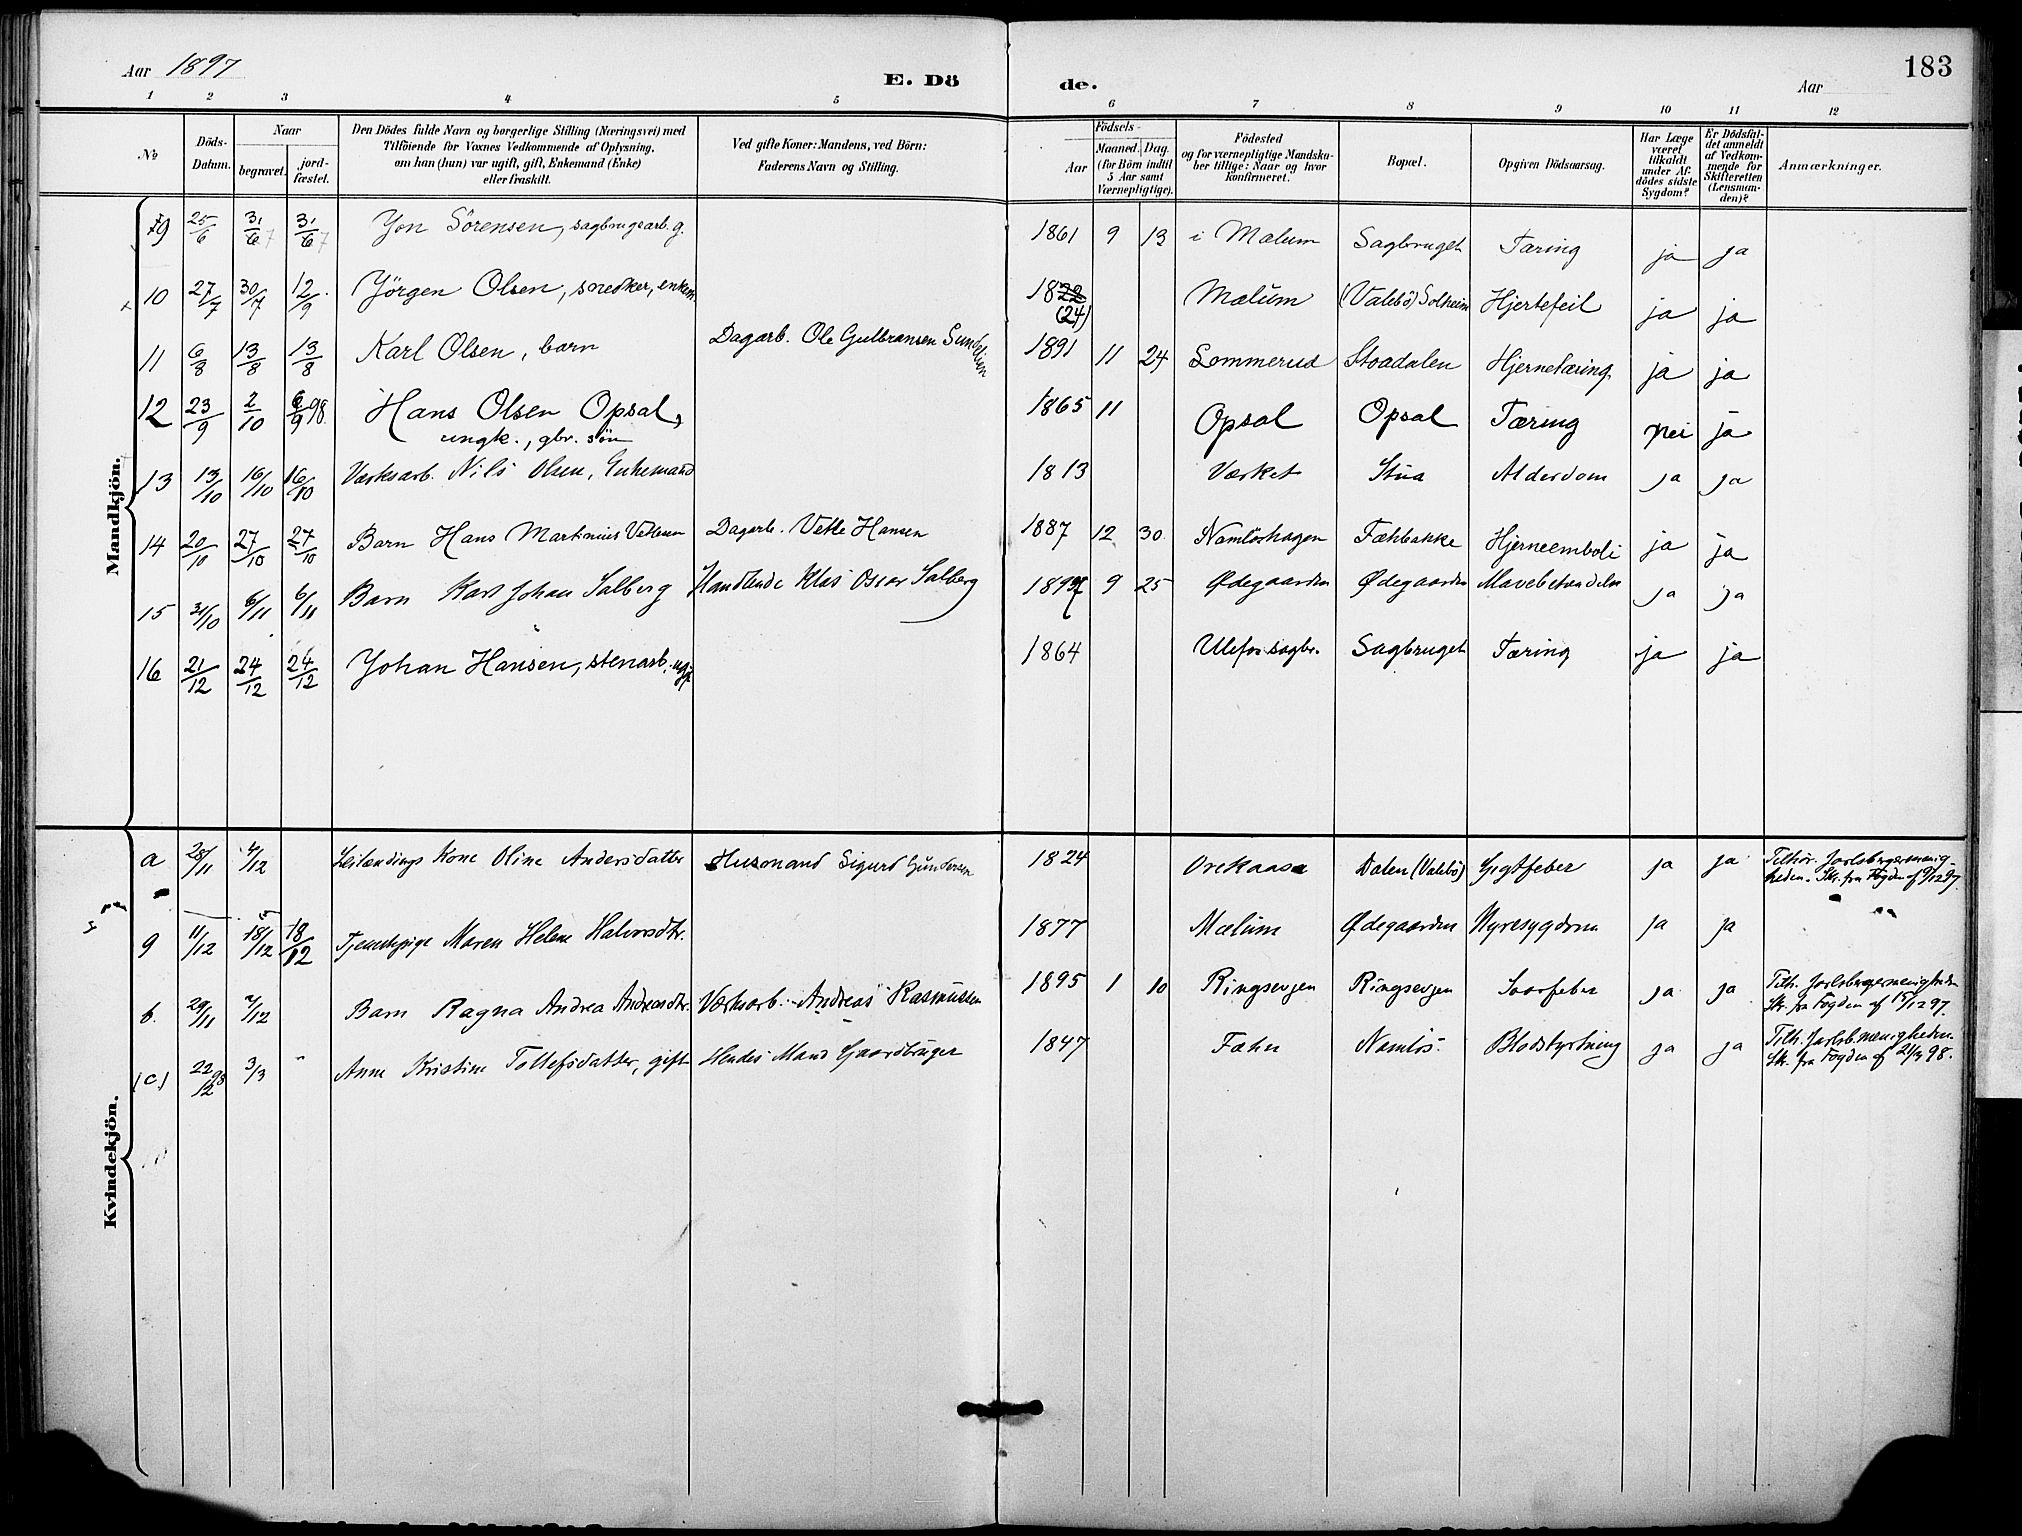 Aar 1897
E. Dö de.
Aar
183
1 2 3 4 5 6 7 8 9 10 11 12
No
Döds-Datum.
Naar
begravet.
jord-fæstet.
Den Dödes fulde Navn og borgerlige Stilling (Næringsvei) med
Tilföiende for Voxnes Vedkommende af Oplysning,
om han (hun) var ugift, gift, Enkemand (Enke)
eller fraskilt.
Ved gifte Koner: Mandens, ved Börn:
Faderens Navn og Stilling.
Födsels-
Aar
Maaned. Dag.
(for Börn indtil
5 Aar samt
Værnepligtige).
Födested
og for værnepligtige Mandska-
ber tillige: Naar og hvor
konfirmeret.
Bopæl.
Opgiven Dödsaarsag.
Har Læge
været
tilkaldt
under Af-
dödes sidste
Sygdom?
Er Dödsfal-
det anmeldt
af Vedkom-
mende for
Skifteretten
(Lensman-
den)?
Anmærkninger.
Mandkjön.
9 25/6 31/7 31/7 Jon Sörensen, sagbrugsarb. g. 1861 9 13 i Mælum Sagbruget Tæring ja ja
10 27/7 30/7 12/9 Jörgen Olsen, snedker, enkem. 1822 (24) Mælum (Valebö) Solheim Hjertefeil ja ja
11 6/8 13/8 13/8 Karl Olsen, barn Dagarb. Ole Gulbransen 1891 11 24 Sommerud Stoadalen Hjernetæring. ja ja
12 23/9 2/10 /9 98. Hans Olsen Opsal, 1865 11 Opsal Opsal Tæring nei ja
ungk., gbr. sön
13 13/10 16/10 16/10 Værksarb. Nils Olsen, Enkemand 1813 Værket Stua Alderdom ja ja
14 20/10 27/10 27/10 Barn Hans Martinius Vetlesen Dagarb. Vetle Hansen 1887 12 30 Namlöshagen Fæhbakke Hjerneemboli ja ja
15 31/10 6/11 6/11 Barn Karl Johan Salberg Handlende Klas Oscar Salberg 1897 9 25 Ødegaarden Ødegaarden ja ja
16 21/12 24/12 24/12 Johan Hansen, stenarb. ug. 1864 Ulefos sagbr. Sagbruget Tæring ja ja
Kvindekjön.
a 28/11 4/12 Leilændings Kone Oline Andersdatter Husmand Sigurd Gundersen 1824 Orekaasa Dalen (Valebö) Gigtfeber ja ja Tilhör. Jarlsbergermenig-
heden. Skr. fra Fogden af 9/12 97.
9 11/12 18/12 18/12 Tjenestepige Maren Helene Halvorsdtr. 1877 Mælum Ødegaarden Nyresygdom ja ja
b. 29/11 7/12 Barn Ragna Andrea Andreasdtr. Værksarb. Andreas Rasmussen 1895 1 10 Ringsevjen Ringsevjen ja ja Tilh. Jarlsbergermenigheden
Skr. fra Fogden af 15/12 97.
(c) 22/12 98 3/3 " Anne Kristine Tollefsdatter, gift Hendes Mand Gaardbruger 1847 Fæhn Namlös. Blodstyrtning ja ja Tilh. Jarlsb. menigheden.
Skr. fra Fogden af 21/3 98.